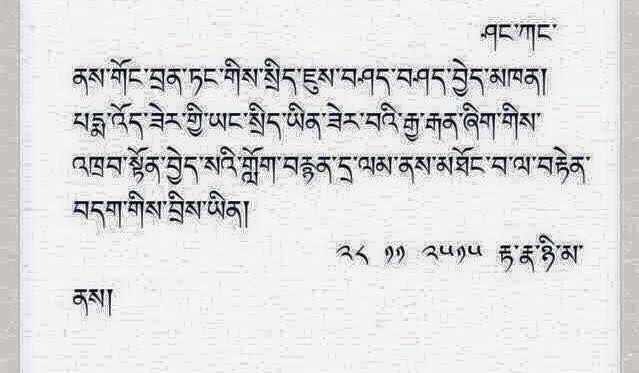 ཤང་ཀང་
ནས་གོང་བྲན་ཏང་གིས་སྲིད་ཇུས་བཤད་བཤད་བྱེད་མཁན།
པདྨ་འོད་ཟེར་གྱི་ཡང་སྲིད་ཡིན་ཟེར་བའི་རྒྱ་རྒན་ཞིག་གིས་
འཁྲབ་སྟོན་བྱེད་སའི་གློག་བརྙན་དྲ་ལམ་ནས་མཐོང་བ་ལ་བརྟེན་
བདག་གིས་བྲིས་ཡིན།
༢༨ ༡༡ ༢༥༡༥ རྟ་རྣ་ཉི་མ་
ནས།